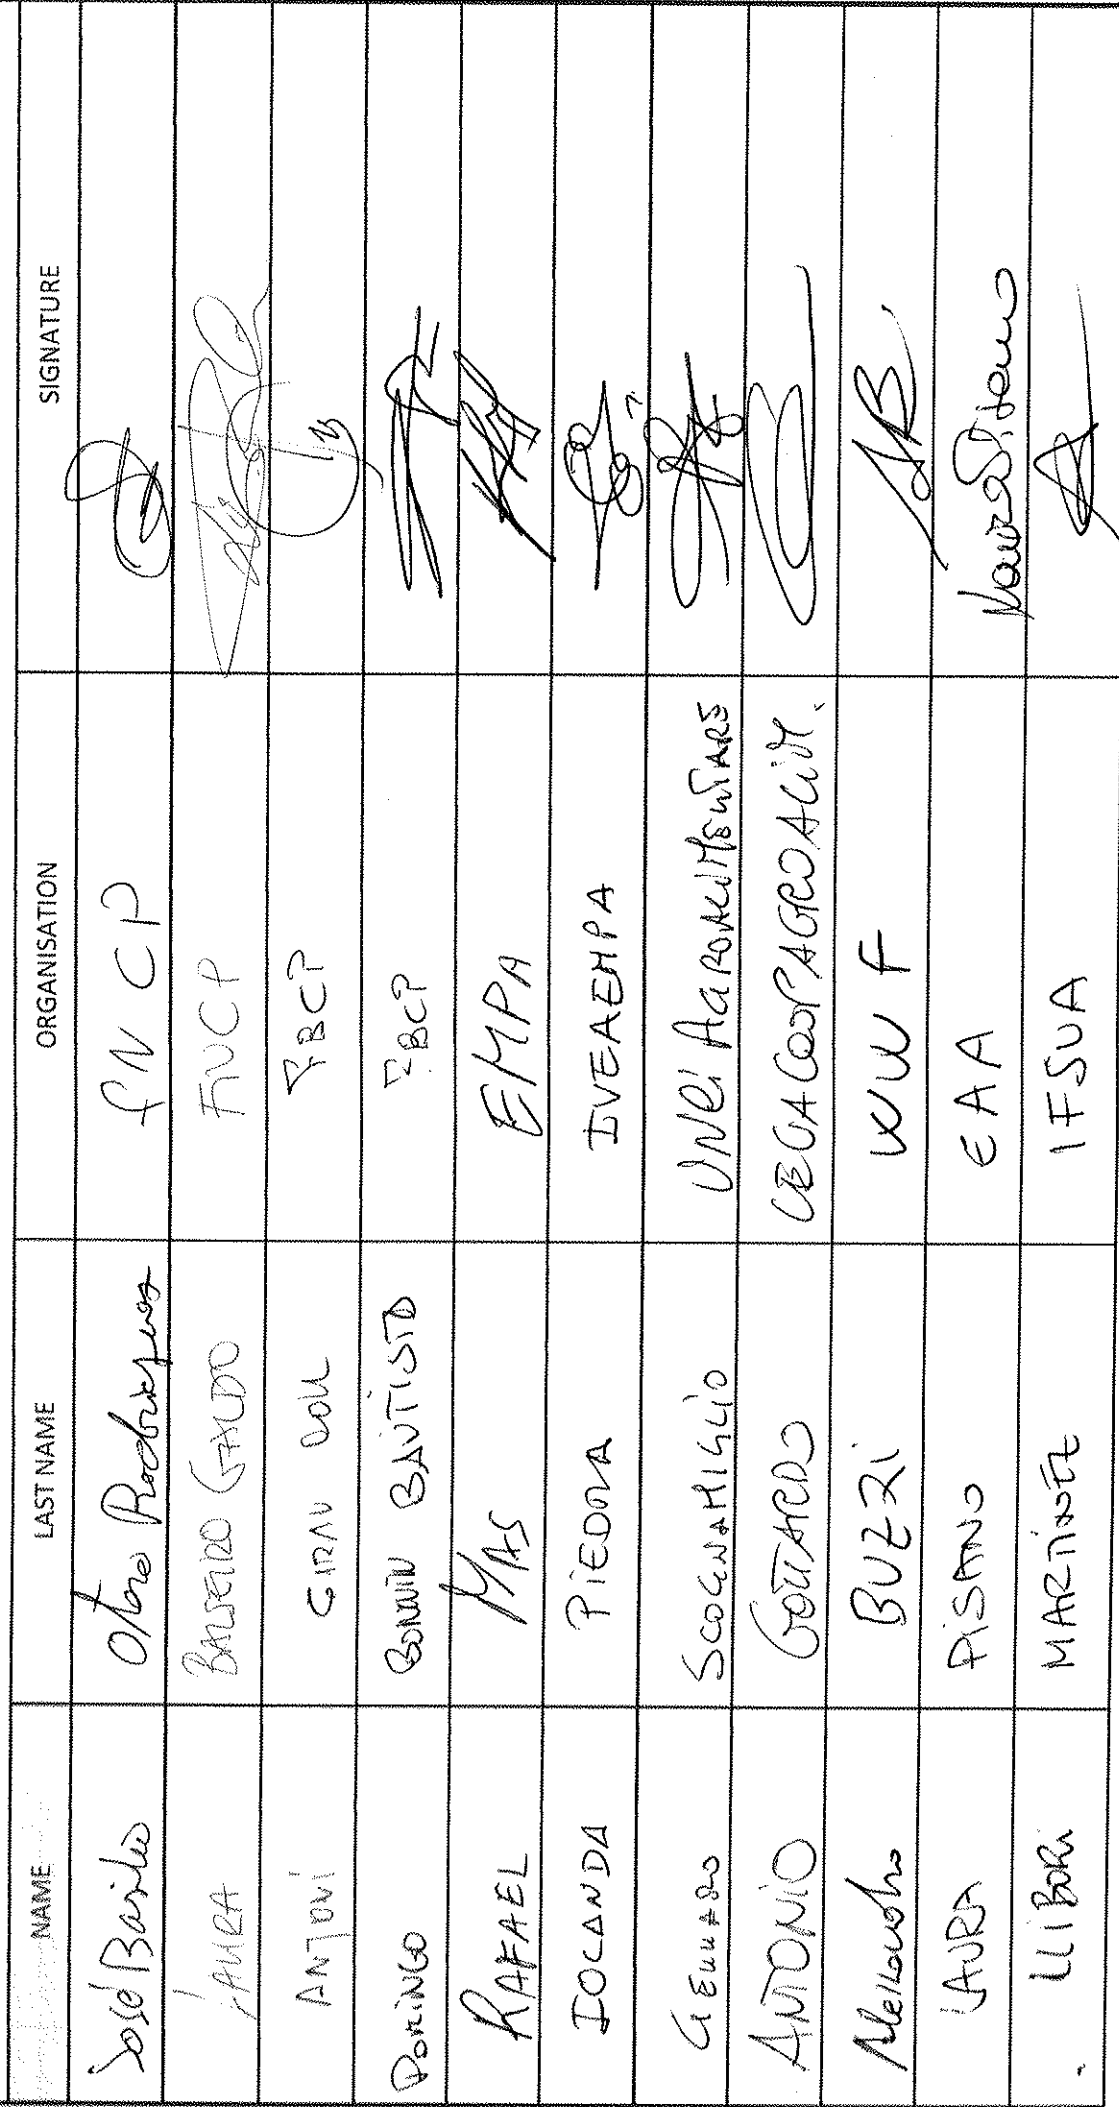 NAME LAST NAME ORGANISATION SIGNATURE
José Basilio Otero Rodriguez FNCP
LAURA BALSEIRO GALDO FNCP
ANTONI GIRAU COLL FBCP
DOMINGO BONNIN BAUTISTA FBCP
RAFAEL MAS EMPA
IOLANDA PIEDRA IVEAEMPA
GENNARO SCOGNAMIGLIO UNCI AGROALIMENTARE
ANTONIO GOTTARDO LEGACOOPAGROALIM.
Alessandro BUZZI WWF
LAURA PISANO EAA Laura Pisano
LLIBORI MARTINEZ IFSUA